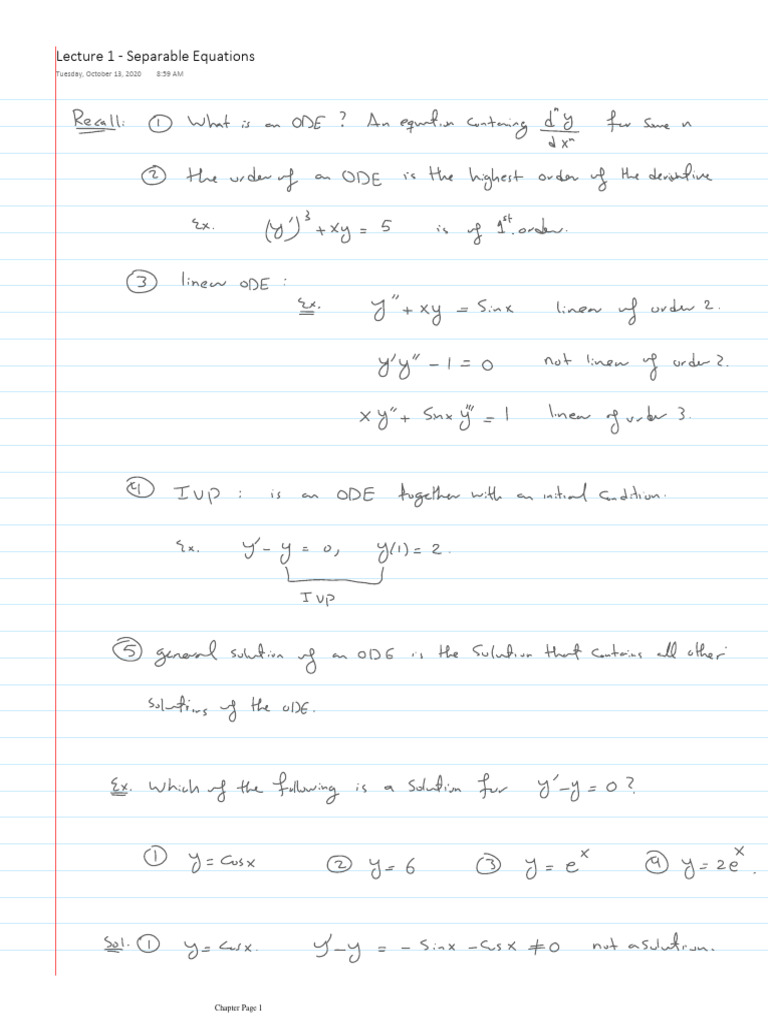 Lecture 1 - Separable Equations
Tuesday, October 13, 2020 8:59 AM
Recall: ① What is an ODE? An equation containing dⁿy/dxⁿ for some n
② the order of an ODE is the highest order of the derivative
Ex. (y')³ + xy = 5 is of 1st. order.
③ linear ODE :
Ex. y'' + xy = Sinx linear of order 2.
y'y'' - 1 = 0 not linear of order 2.
x y'' + Sinx y''' = 1 linear of order 3.
④ IVP : is an ODE together with an initial condition.
Ex. y' - y = 0, y(1) = 2.
IVP
⑤ general solution of an ODE is the solution that contains all other
solutions of the ODE.
Ex. Which of the following is a solution for y' - y = 0?
① y = Cosx ② y = 6 ③ y = eˣ ④ y = 2eˣ.
Sol. ① y = Cosx. y' - y = - Sinx - Cosx ≠ 0 not a solution.
Chapter Page 1